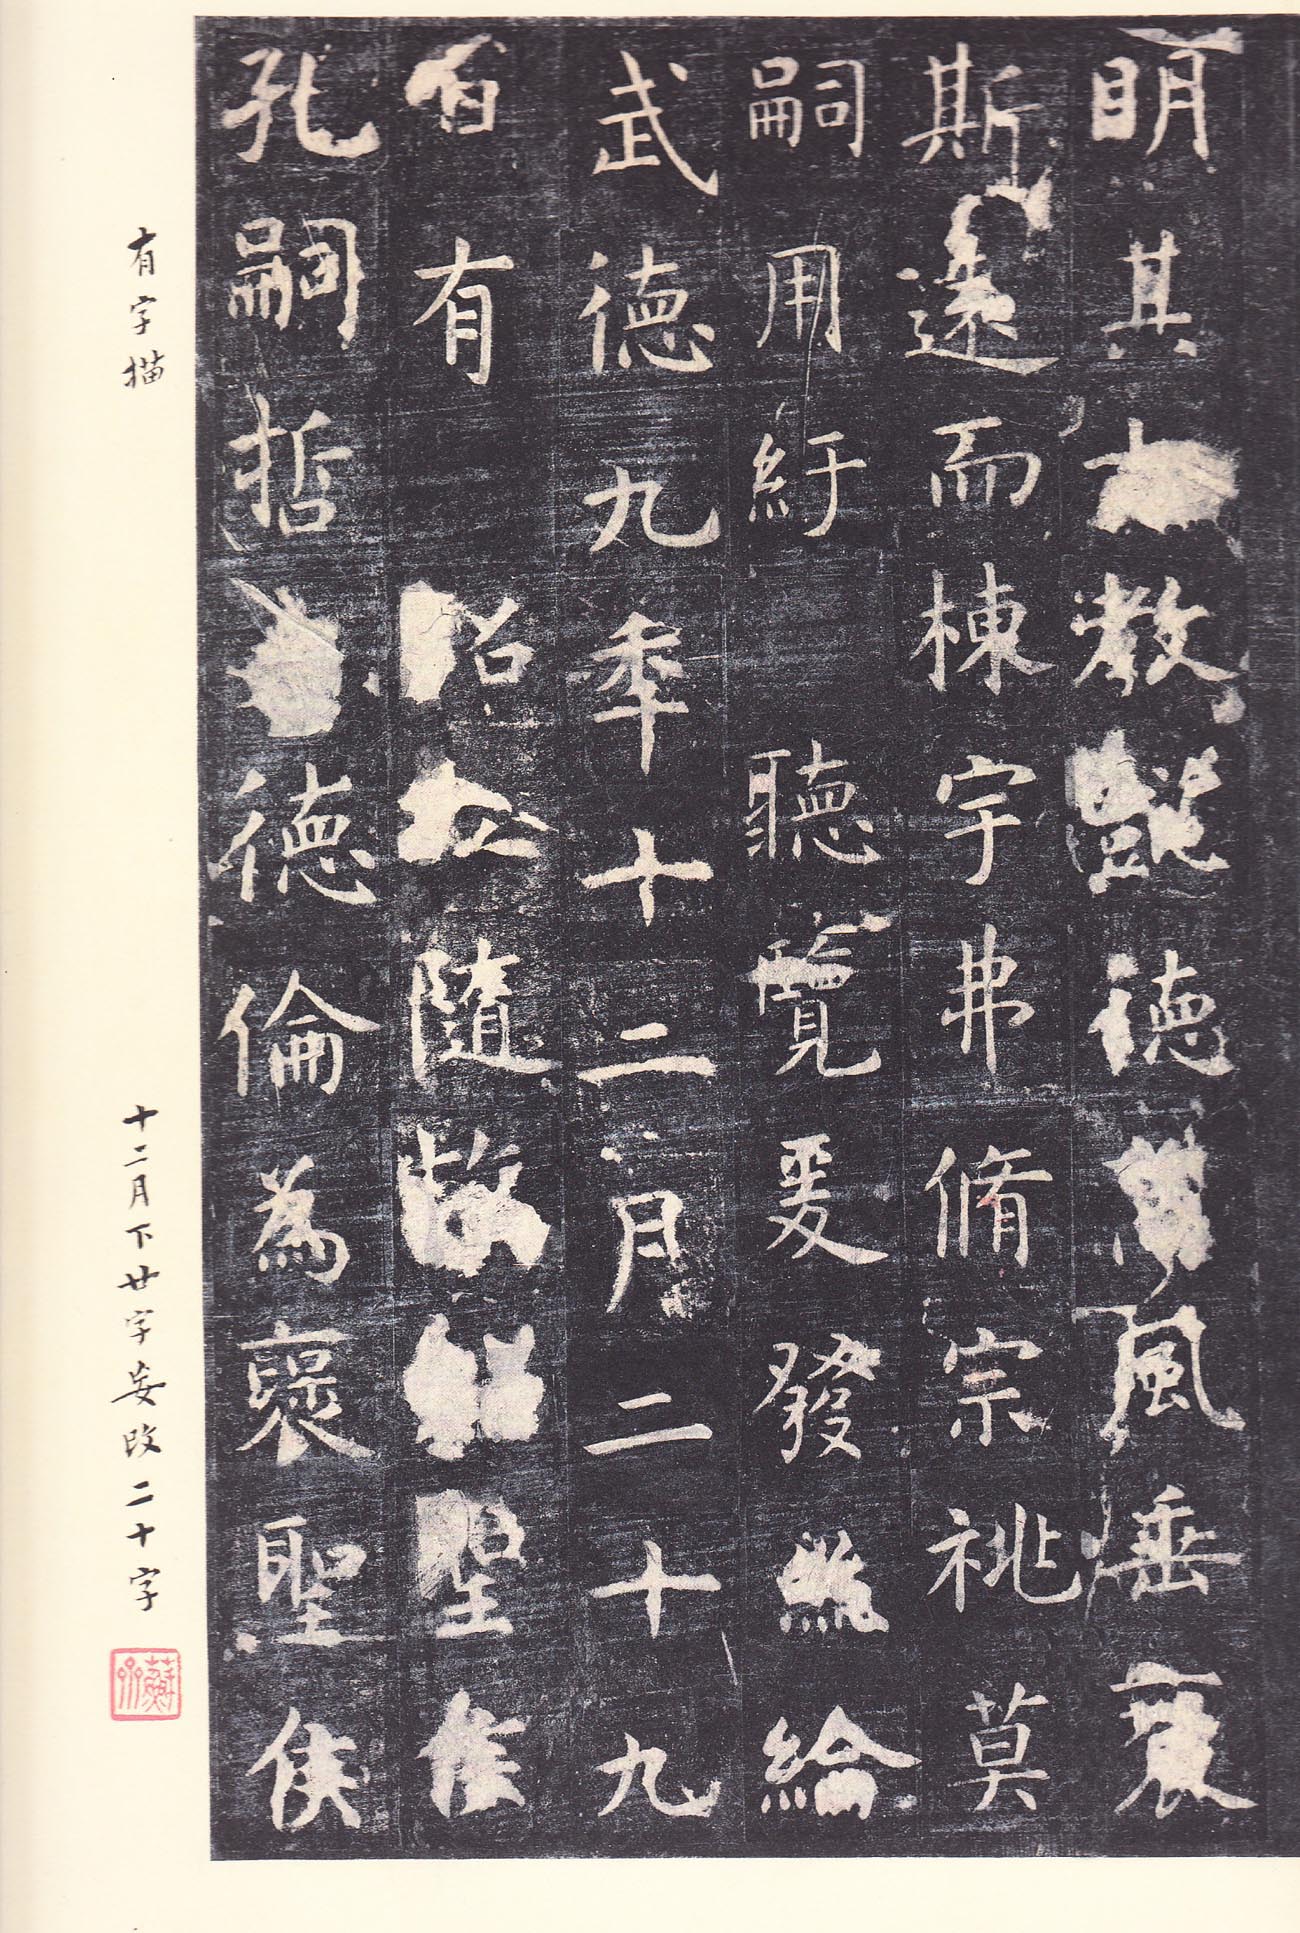 明其教懿德風垂
斯遠而棟宇弗脩宗祧莫
嗣用紆聽覽爰發絲綸
武德九秊十二月二十九
日有詔立隨故聖侯
孔嗣哲德倫為襃聖侯
有字描
十二月下廿字妄改二十字